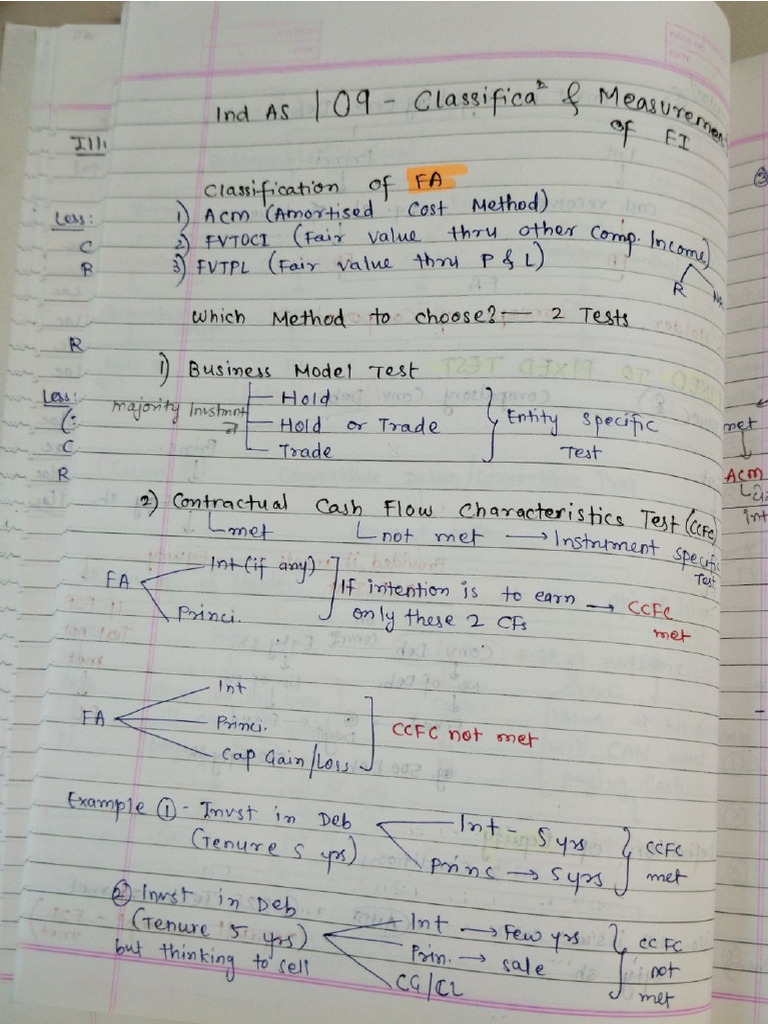 Ind AS 109 - Classifica² & Measuremen
of FI
Ill:
Classification of FA
1) ACM (Amortised Cost Method)
Less:
2) FVTOCI (Fair value thru other Comp. Income)
C
3) FVTPL (Fair value thru P & L)
R
R
Which Method to choose? — 2 Tests
R
1) Business Model Test
Less:
Hold
majority Invstmnt
Hold or Trade
Entity specific
Test
Trade
(:
C
R
met
ACM
int
2) Contractual Cash Flow Characteristics Test (CCFC)
met
not met → Instrument specific
Test
Int (if any)
FA
If intention is to earn → CCFC
Princi.
only these 2 CFs
met
Int
FA
Princi.
CCFC not met
Cap Gain/Loss
Example ① - Invst in Deb
Int - 5 yrs
CCFC
(Tenure 5 yrs)
Princ → 5 yrs
met
② Invst in Deb
Int → Few yrs
CCFC
(Tenure 5 yrs)
Prin. → sale
not
but thinking to sell
CG/CL
met